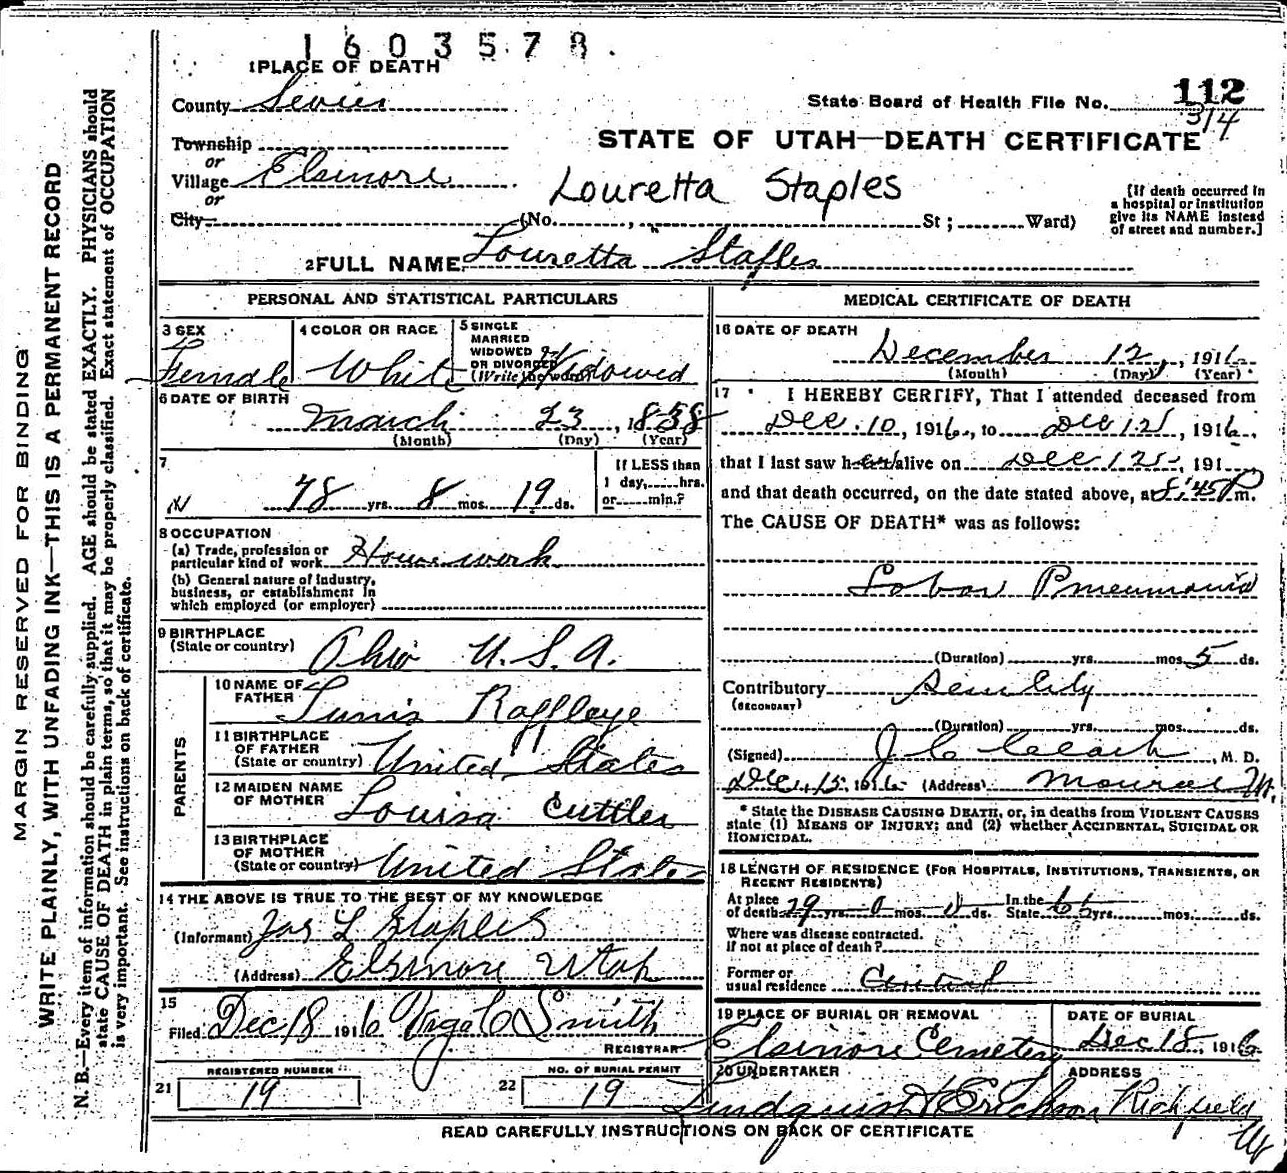 1603578
1 PLACE OF DEATH
County Sevier
State Board of Health File No. 112
314
Township
or
Village Elsinore
or
City
STATE OF UTAH—DEATH CERTIFICATE
Louretta Staples
(No. , St ; Ward)
[If death occurred in
a hospital or institution
give its NAME instead
of street and number.]
2 FULL NAME Louretta Staples
PERSONAL AND STATISTICAL PARTICULARS
3 SEX
Female
4 COLOR OR RACE
White
5 SINGLE
MARRIED
WIDOWED
OR DIVORCED
(Write the word)
Widowed
6 DATE OF BIRTH
March 23, 1838
(Month) (Day) (Year)
7
78 yrs. 8 mos. 19 ds.
If LESS than
1 day, hrs.
or min.?
8 OCCUPATION
(a) Trade, profession or
particular kind of work House work
(b) General nature of industry,
business, or establishment in
which employed (or employer)
9 BIRTHPLACE
(State or country) Ohio U.S.A.
PARENTS
10 NAME OF
FATHER Tunis Rappleye
11 BIRTHPLACE
OF FATHER
(State or country) United States
12 MAIDEN NAME
OF MOTHER Louisa Cuttler
13 BIRTHPLACE
OF MOTHER
(State or country) United States
14 THE ABOVE IS TRUE TO THE BEST OF MY KNOWLEDGE
(Informant) Jas L Staples
(Address) Elsinore Utah
15
Filed Dec 18 1916 Smith
REGISTRAR
21 REGISTERED NUMBER
19
22 NO. OF BURIAL PERMIT
19
MEDICAL CERTIFICATE OF DEATH
16 DATE OF DEATH
December 12, 1916
(Month) (Day) (Year)
17 I HEREBY CERTIFY, That I attended deceased from
Dec. 10, 1916, to Dec 12, 1916,
that I last saw her alive on Dec 12, 191
and that death occurred, on the date stated above, at 8:45 P m.
The CAUSE OF DEATH* was as follows:
Lobar Pneumonia
(Duration) yrs. mos. 5 ds.
Contributory Senility
(SECONDARY)
(Duration) yrs. mos. ds.
(Signed) J C , M. D.
Dec. 15, 1916 (Address) Monroe Ut.
* State the DISEASE CAUSING DEATH, or, in deaths from VIOLENT CAUSES
state (1) MEANS OF INJURY; and (2) whether ACCIDENTAL, SUICIDAL OR
HOMICIDAL.
18 LENGTH OF RESIDENCE (FOR HOSPITALS, INSTITUTIONS, TRANSIENTS, OR
RECENT RESIDENTS)
At place
of death 29 yrs. 0 mos. 0 ds. In the
State yrs. mos. ds.
Where was disease contracted.
if not at place of death?
Former or
usual residence Central
19 PLACE OF BURIAL OR REMOVAL
Elsinore Cemetery
DATE OF BURIAL
Dec 18, 1916
20 UNDERTAKER
Lindquist & Erickson
ADDRESS
Richfield
Ut
READ CAREFULLY INSTRUCTIONS ON BACK OF CERTIFICATE
MARGIN RESERVED FOR BINDING
WRITE PLAINLY, WITH UNFADING INK—THIS IS A PERMANENT RECORD
N. B.—Every item of information should be carefully supplied. AGE should be stated EXACTLY. PHYSICIANS should
state CAUSE OF DEATH in plain terms, so that it may be properly classified. Exact statement of OCCUPATION
is very important. See instructions on back of certificate.